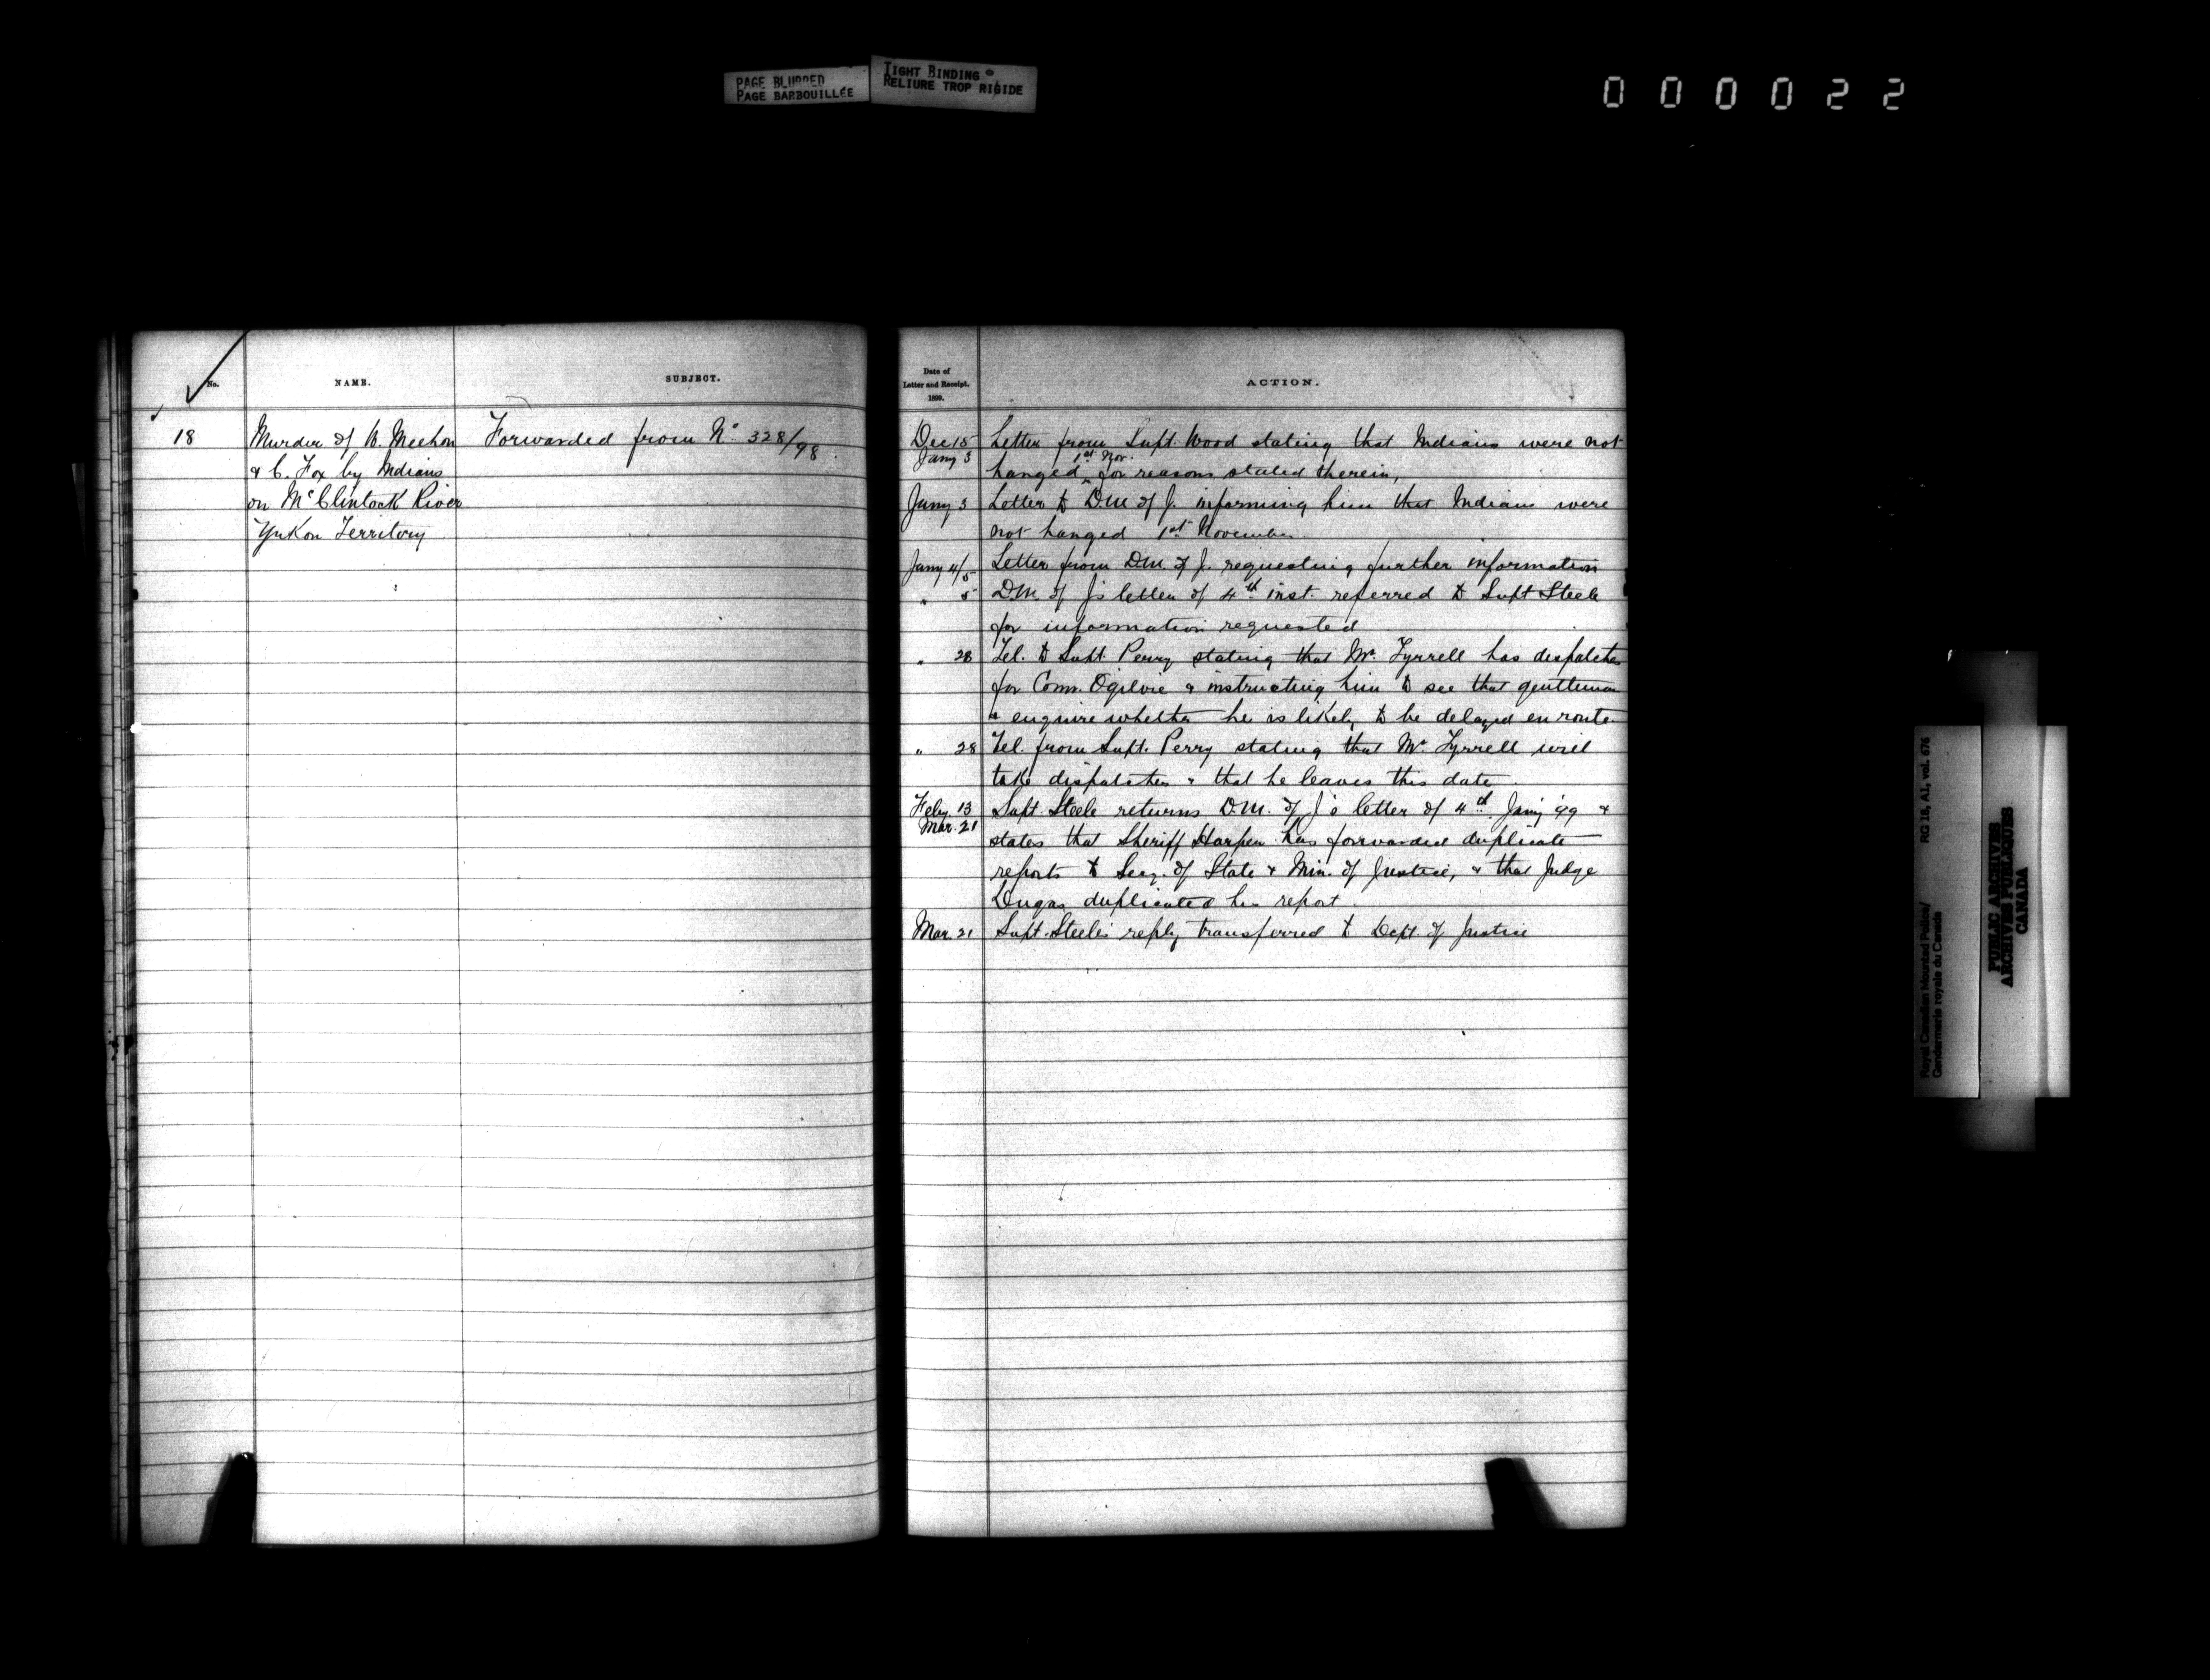 PAGE BLURRED
PAGE BARBOUILLÉE
TIGHT BINDING
RELIURE TROP RIGIDE
000022
No.
NAME.
SUBJECT.
18
Murder of W. Meehon
& C. Fox by Indians
on McClintock River
Yukon Territory
Forwarded from No. 328/98.
Date of
Letter and Receipt.
1899.
ACTION.
Dec 15 Letter from Supt. Wood stating that Indians were not
Jany 3 hanged ^ 1st Nov. for reasons stated therein,
Jany 3 Letter to D.M. of J. informing him that Indians were
not hanged 1st November.
Jany 4/5 Letter from D.M. of J. requesting further information
" 5 D.M. of J's letter of 4th inst. referred to Supt Steele
for information requested
" 28 Tel. to Supt. Perry stating that Mr. Tyrrell has dispatches
for Comr. Ogilvie & instructing him to see that gentleman
& enquire whether he is likely to be delayed en route.
" 28 Tel. from Supt. Perry stating that Mr Tyrrell will
take dispatches & that he leaves this date.
Feby. 13 Supt. Steele returns D.M. of J's letter of 4th Jany '99 &
Mar. 21 states that Sheriff Harper has forwarded duplicate
reports to Secy. of State & Min. of Justice, & that Judge
Dugas duplicated his report.
Mar. 21 Supt. Steele's reply transferred to Dept. of Justice
Royal Canadian Mounted Police/
Gendarmerie royale du Canada
RG 18, A1, vol. 676
PUBLIC ARCHIVES
ARCHIVES PUBLIQUES
CANADA